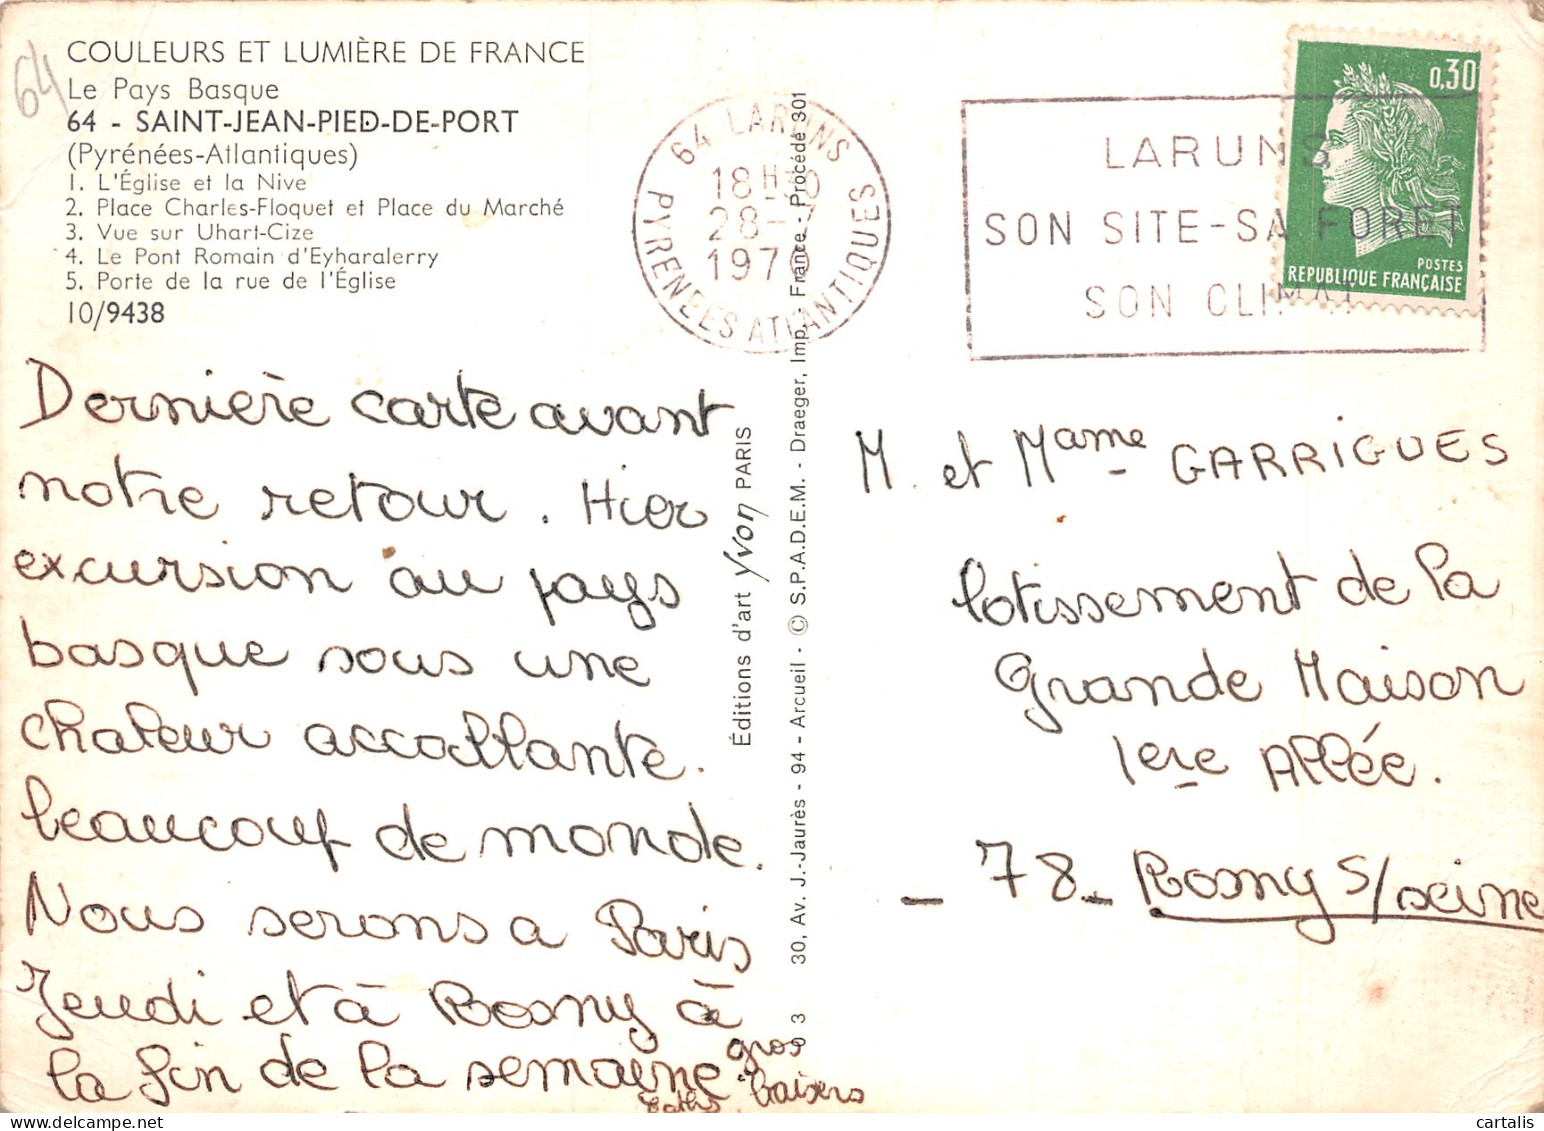 64
COULEURS ET LUMIÈRE DE FRANCE
Le Pays Basque
64 - SAINT-JEAN-PIED-DE-PORT
(Pyrénées-Atlantiques)
1. L'Église et la Nive
2. Place Charles-Floquet et Place du Marché
3. Vue sur Uhart-Cize
4. Le Pont Romain d'Eyharalerry
5. Porte de la rue de l'Église
10/9438
Dernière carte avant
notre retour. Hier
excursion au pays
basque sous une
chaleur accollante.
beaucoup de monde.
Nous serons a Paris
Jeudi et à Rosny à
la fin de la semaine
gros
baisers
Éditions d'art Yvon PARIS
30, Av. J.-Jaurès - 94 - Arcueil - © S.P.A.D.E.M. - Draeger, Imp. France - Procédé 301
3
64 LARUNS
18H
28-7
1970
PYRENEES ATLANTIQUES
LARUNS
SON SITE-SA FORET
SON CLIMAT
0,30
POSTES
REPUBLIQUE FRANÇAISE
M. et Mame GARRIGUES
lotissement de la
Grande Maison
1ere Allée.
- 78 - Rosny S/seine
cartalis